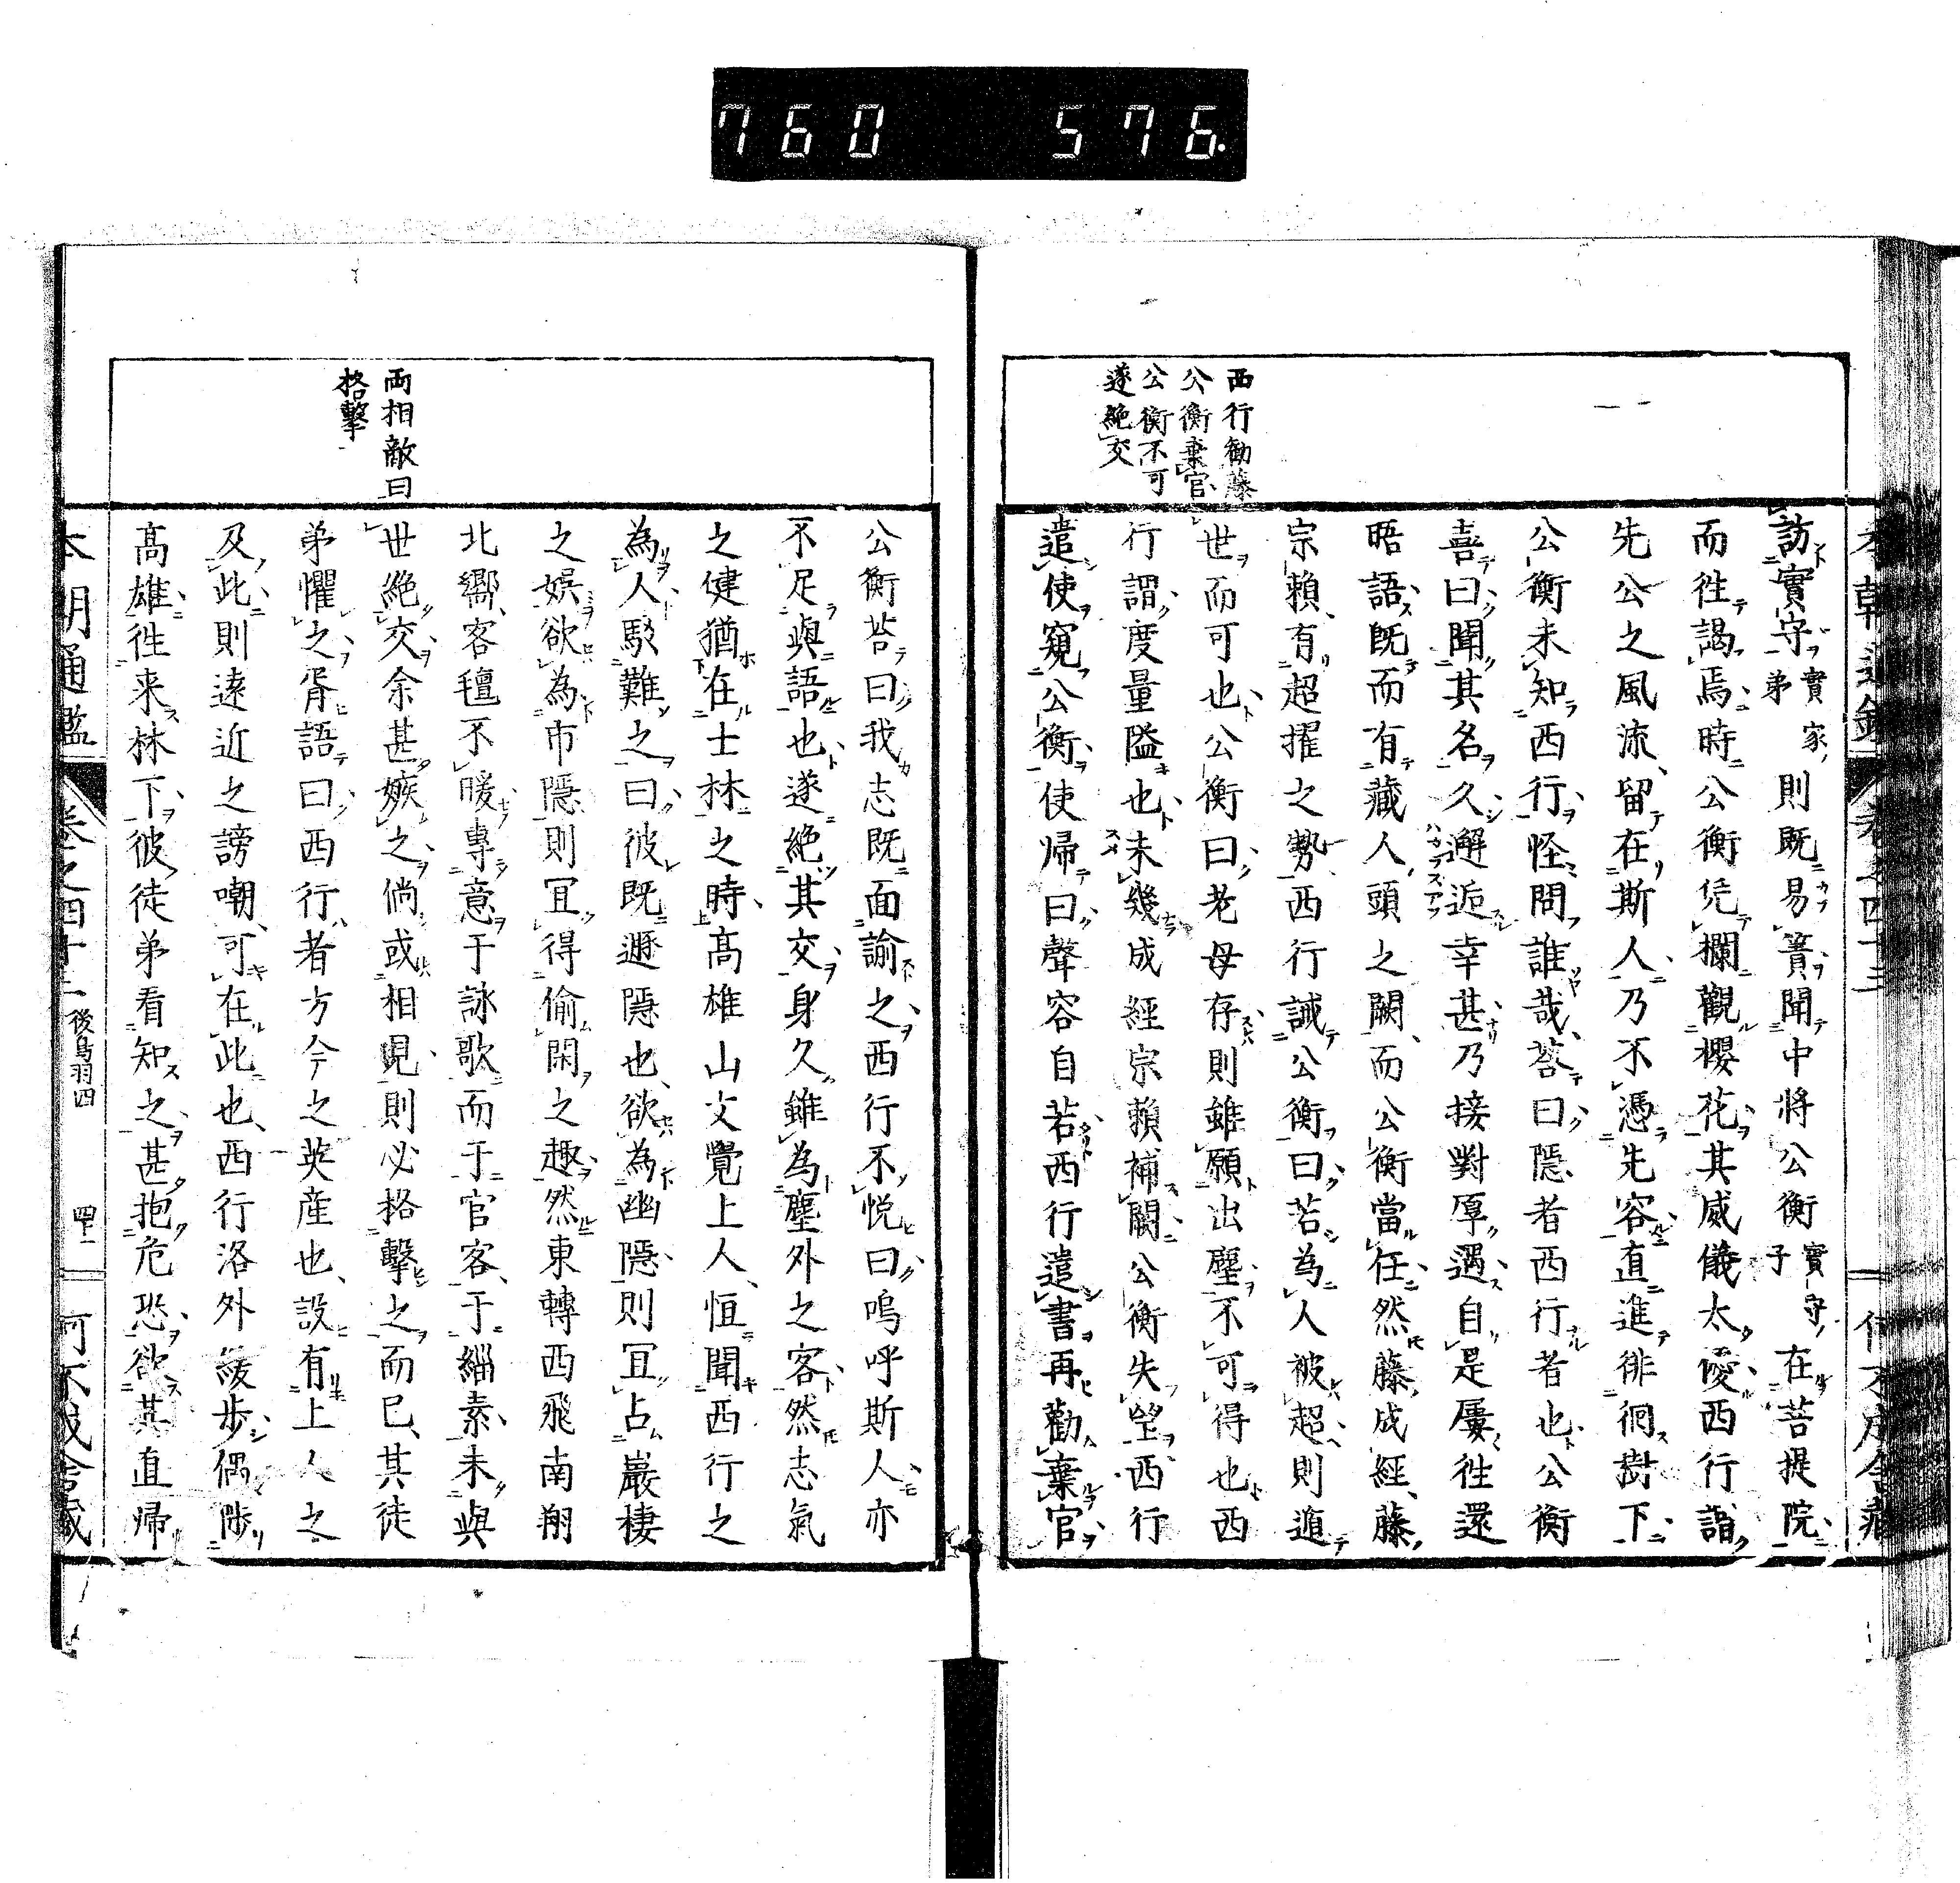 760 576.
西行勸藤
公衡棄官
公衡不可
遂絶交
訪實守實家弟則既易簀聞中將公衡實守子在菩提院
而徃謁焉時公衡凭欄觀櫻花其威儀太優西行詣
先公之風流留在斯人乃不憑先容直進徘徊樹下
公衡未知西行怪問誰哉荅曰隱者西行者也公衡
喜曰聞其名久邂逅幸甚乃接對厚遇自是屢徃還
晤語既而有藏人頭之闕而公衡當任然藤成經藤
宗頼有超擢之勢西行誡公衡曰若為人被超則遁
世而可也公衡曰老母存則雖願出塵不可得也西
行謂度量隘也未幾成經宗頼補闕公衡失望西行
遣使窺公衡使帰曰聲容自若西行遣書再勸棄官
両相敵曰
格擊
公衡荅曰我志既面諭之西行不悦曰嗚呼斯人亦
不足與語也遂絶其交身久雖為塵外之客然志氣
之健猶在士林之時高雄山文覺上人恒聞西行之
為人駁難之曰彼既遯隱也欲為幽隱則冝占巖棲
之娯欲為市隱則冝得偷閑之趣然東轉西飛南翔
北嚮客氊不暖專意于詠歌而于官客于緇素未與
世絶交余甚嫉之倘或相見則必格擊之而已其徒
弟懼之胥語曰西行者方今之英産也設有上人之
及此則遠近之謗嘲可在此也西行洛外緩歩偶陟
高雄徃来林下彼徒弟看知之甚抱危恐欲其直帰
本朝通鑑
卷之四十三
後鳥羽四